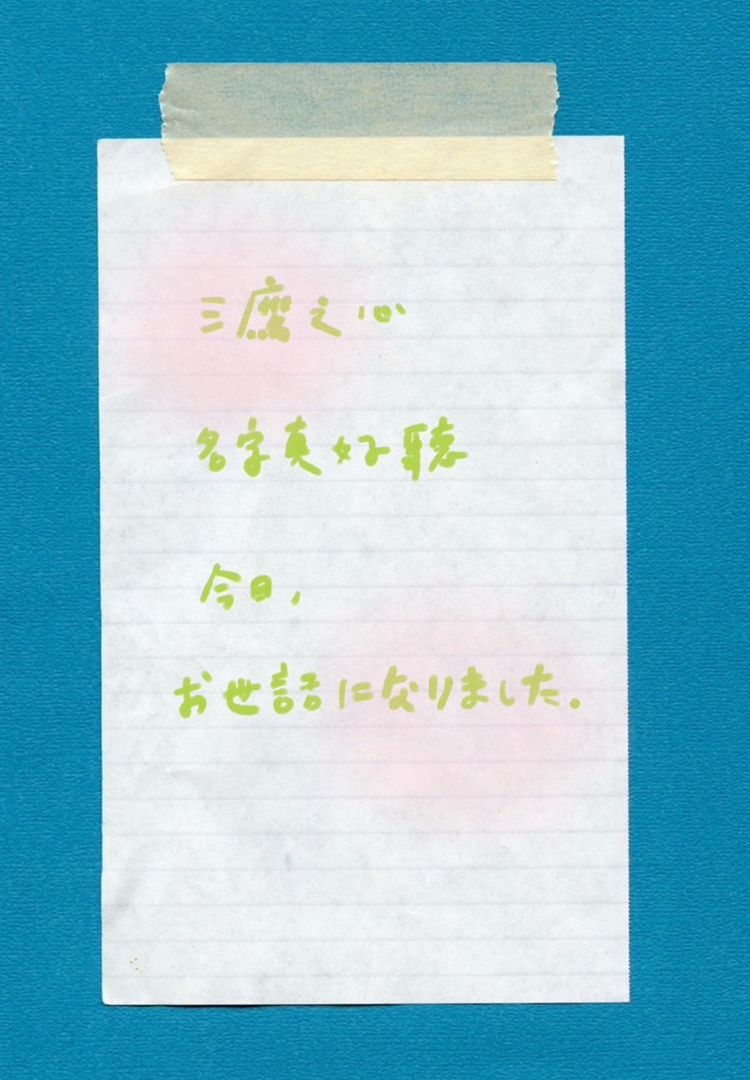 三麼之心
名字真好聽
今日,
お世話になりました.